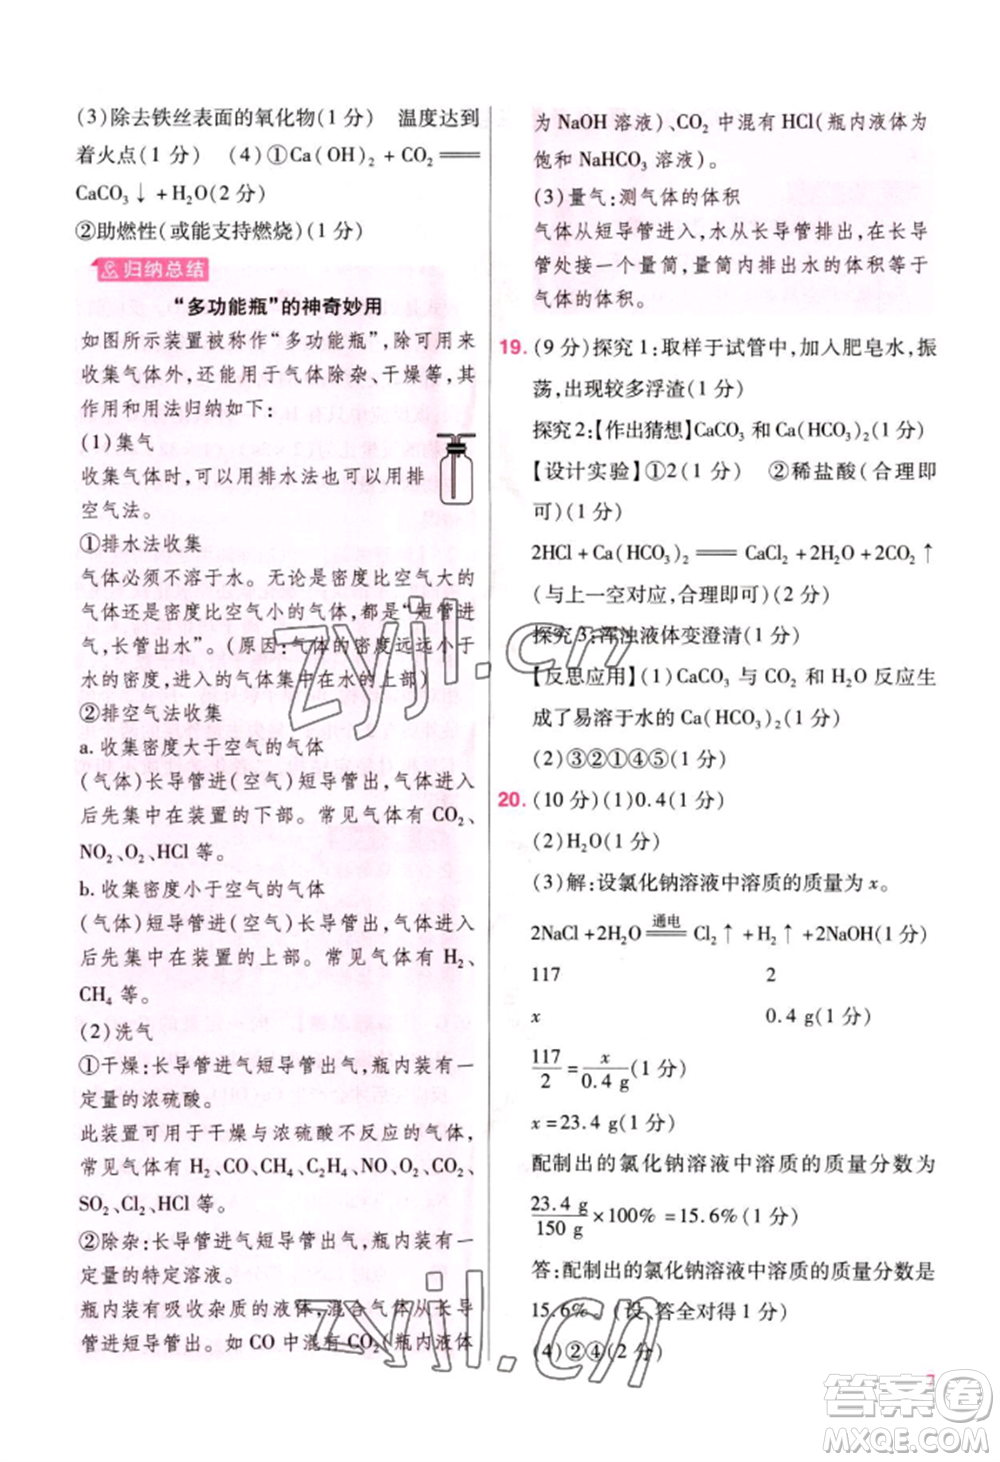 (3)除去铁丝表面的氧化物(1分)　温度达到
着火点(1分)　(4)①Ca(OH)₂+CO₂══
CaCO₃↓+H₂O(2分)
②助燃性(或能支持燃烧)(1分)
归纳总结
“多功能瓶”的神奇妙用
如图所示装置被称作“多功能瓶”,除可用来
收集气体外,还能用于气体除杂、干燥等,其
作用和用法归纳如下:
(1)集气
收集气体时,可以用排水法也可以用排
空气法。
①排水法收集
气体必须不溶于水。无论是密度比空气大的
气体还是密度比空气小的气体,都是“短管进
气,长管出水”。(原因:气体的密度远远小于
水的密度,进入的气体集中在水的上部)
②排空气法收集
a. 收集密度大于空气的气体
(气体)长导管进(空气)短导管出,气体进入
后先集中在装置的下部。常见气体有O₂、CO₂、
NO₂、O₃、HCl等。
b. 收集密度小于空气的气体
(气体)短导管进(空气)长导管出,气体进入
后先集中在装置的上部。常见气体有H₂、
CH₄等。
(2)洗气
①干燥:长导管进气短导管出气,瓶内装有一
定量的浓硫酸。
此装置可用于干燥与浓硫酸不反应的气体,
常见气体有H₂、CO、CH₄、O₂、N₂、NO₂、CO₂、
SO₂、Cl₂、HCl等。
②除杂:长导管进气短导管出气,瓶内装有一
定量的特定溶液。
瓶内装有吸收杂质的液体,混合气体从长导
管进短导管出。如CO中混有CO₂(瓶内液体
为NaOH溶液)、CO₂中混有HCl(瓶内液体为
饱和NaHCO₃溶液)。
(3)量气:测气体的体积
气体从短导管进入,水从长导管排出,在长导
管处接一个量筒,量筒内排出水的体积等于
气体的体积。
19. (9分)探究1:取样于试管中,加入肥皂水,振
荡,出现较多浮渣(1分)
探究2:【作出猜想】CaCO₃和Ca(HCO₃)₂(1分)
【设计实验】①2(1分)　②稀盐酸(合理即
可)(1分)
2HCl+Ca(HCO₃)₂══CaCl₂+2H₂O+2CO₂↑
(与上一空对应,合理即可)(2分)
探究3:浑浊液体变澄清(1分)
【反思应用】(1)CaCO₃与CO₂和H₂O反应生
成了易溶于水的Ca(HCO₃)₂(1分)
(2)③②①④⑤(1分)
20. (10分)(1)0.4(1分)
(2)H₂O(1分)
(3)解:设氯化钠溶液中溶质的质量为x。
2NaCl+2H₂O 通电══ Cl₂↑+H₂↑+2NaOH(1分)
117　2
x　0.4 g(1分)
117/2=x/0.4 g(1分)
x=23.4 g(1分)
配制出的氯化钠溶液中溶质的质量分数为
23.4 g/150 g×100%=15.6%(1分)
答:配制出的氯化钠溶液中溶质的质量分数是
15.6%。(设、答全对得1分)
(4)②④(2分)
zyjl.cn
zyjl.cn
答案圈
MXQE.COM